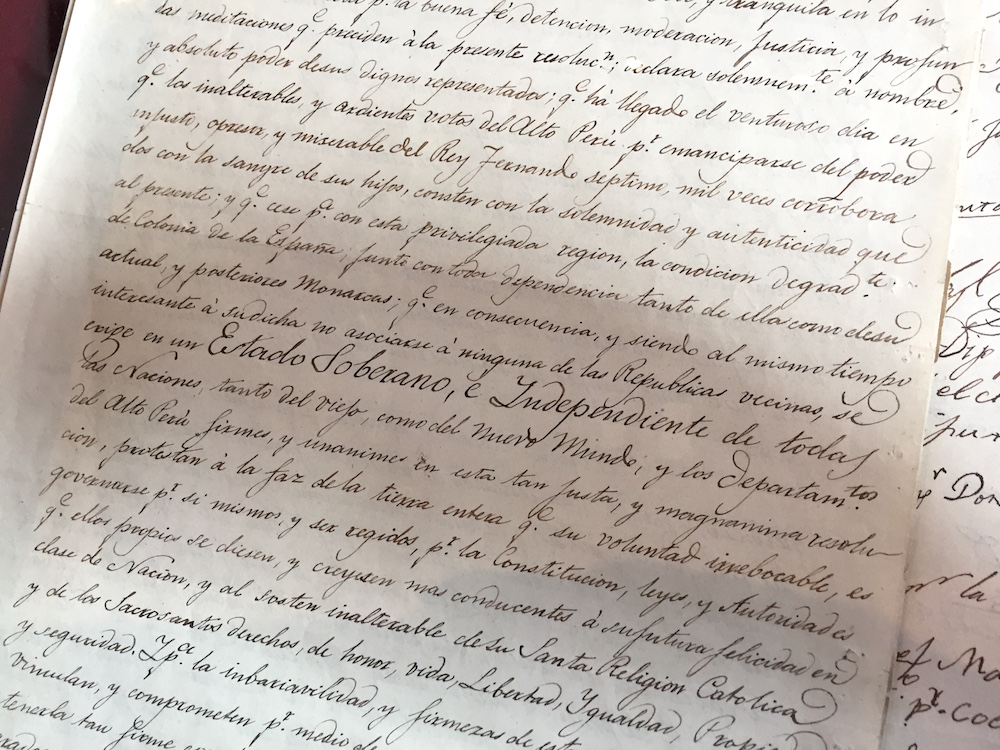 pr. la buena fé, detencion, moderacion, Justicia, y profun
das meditaciones qe. preciden à la presente resolucn.; declara solemnemte. à nombre,
y absoluto poder de sus dignos representados; qe. há llegado el venturoso dia en
qe. los inalterables, y ardientes votos del Alto Perú pr. emanciparse del poder
injusto, opresor, y miserable del Rey Fernando septimo, mil veces corrobora
dos con la sangre de sus hijos, consten con la solemnidad y autenticidad que
al presente; y qe. cese pa. con esta privilegiada region, la condicion degradte.
de Colonia de la España, junto con toda dependencia tanto de ella como de su
actual, y posteriores Monarcas; qe. en consecuencia, y siendo al mismo tiempo
interesante à su dicha no asociarse à ninguna de las Republicas vecinas, se
erige en un Estado Soberano, é Independiente de todas
las Naciones, tanto del viejo, como del nuevo Mundo; y los departamtos.
del Alto Perú firmes, y unanimes en esta tan justa, y magnanima resolu
cion, protestan à la faz de la tierra entera qe. su voluntad irrebocable, es
governarse pr. si mismos, y ser regidos, pr. la Constitucion, leyes, y Autoridades
qe. ellos propios se diesen, y creyesen mas conducentes à su futura felicidad en
clase de Nacion, y al sosten inalterable de su Santa Religion Catolica
y de los Sacrosantos derechos, de honor, vida, Libertad, Ygualdad, Propie
y seguridad. Y pa. la inbariavilidad, y firmeza de est
vinculan, y comprometen pr. medio de
tenerla tan firme